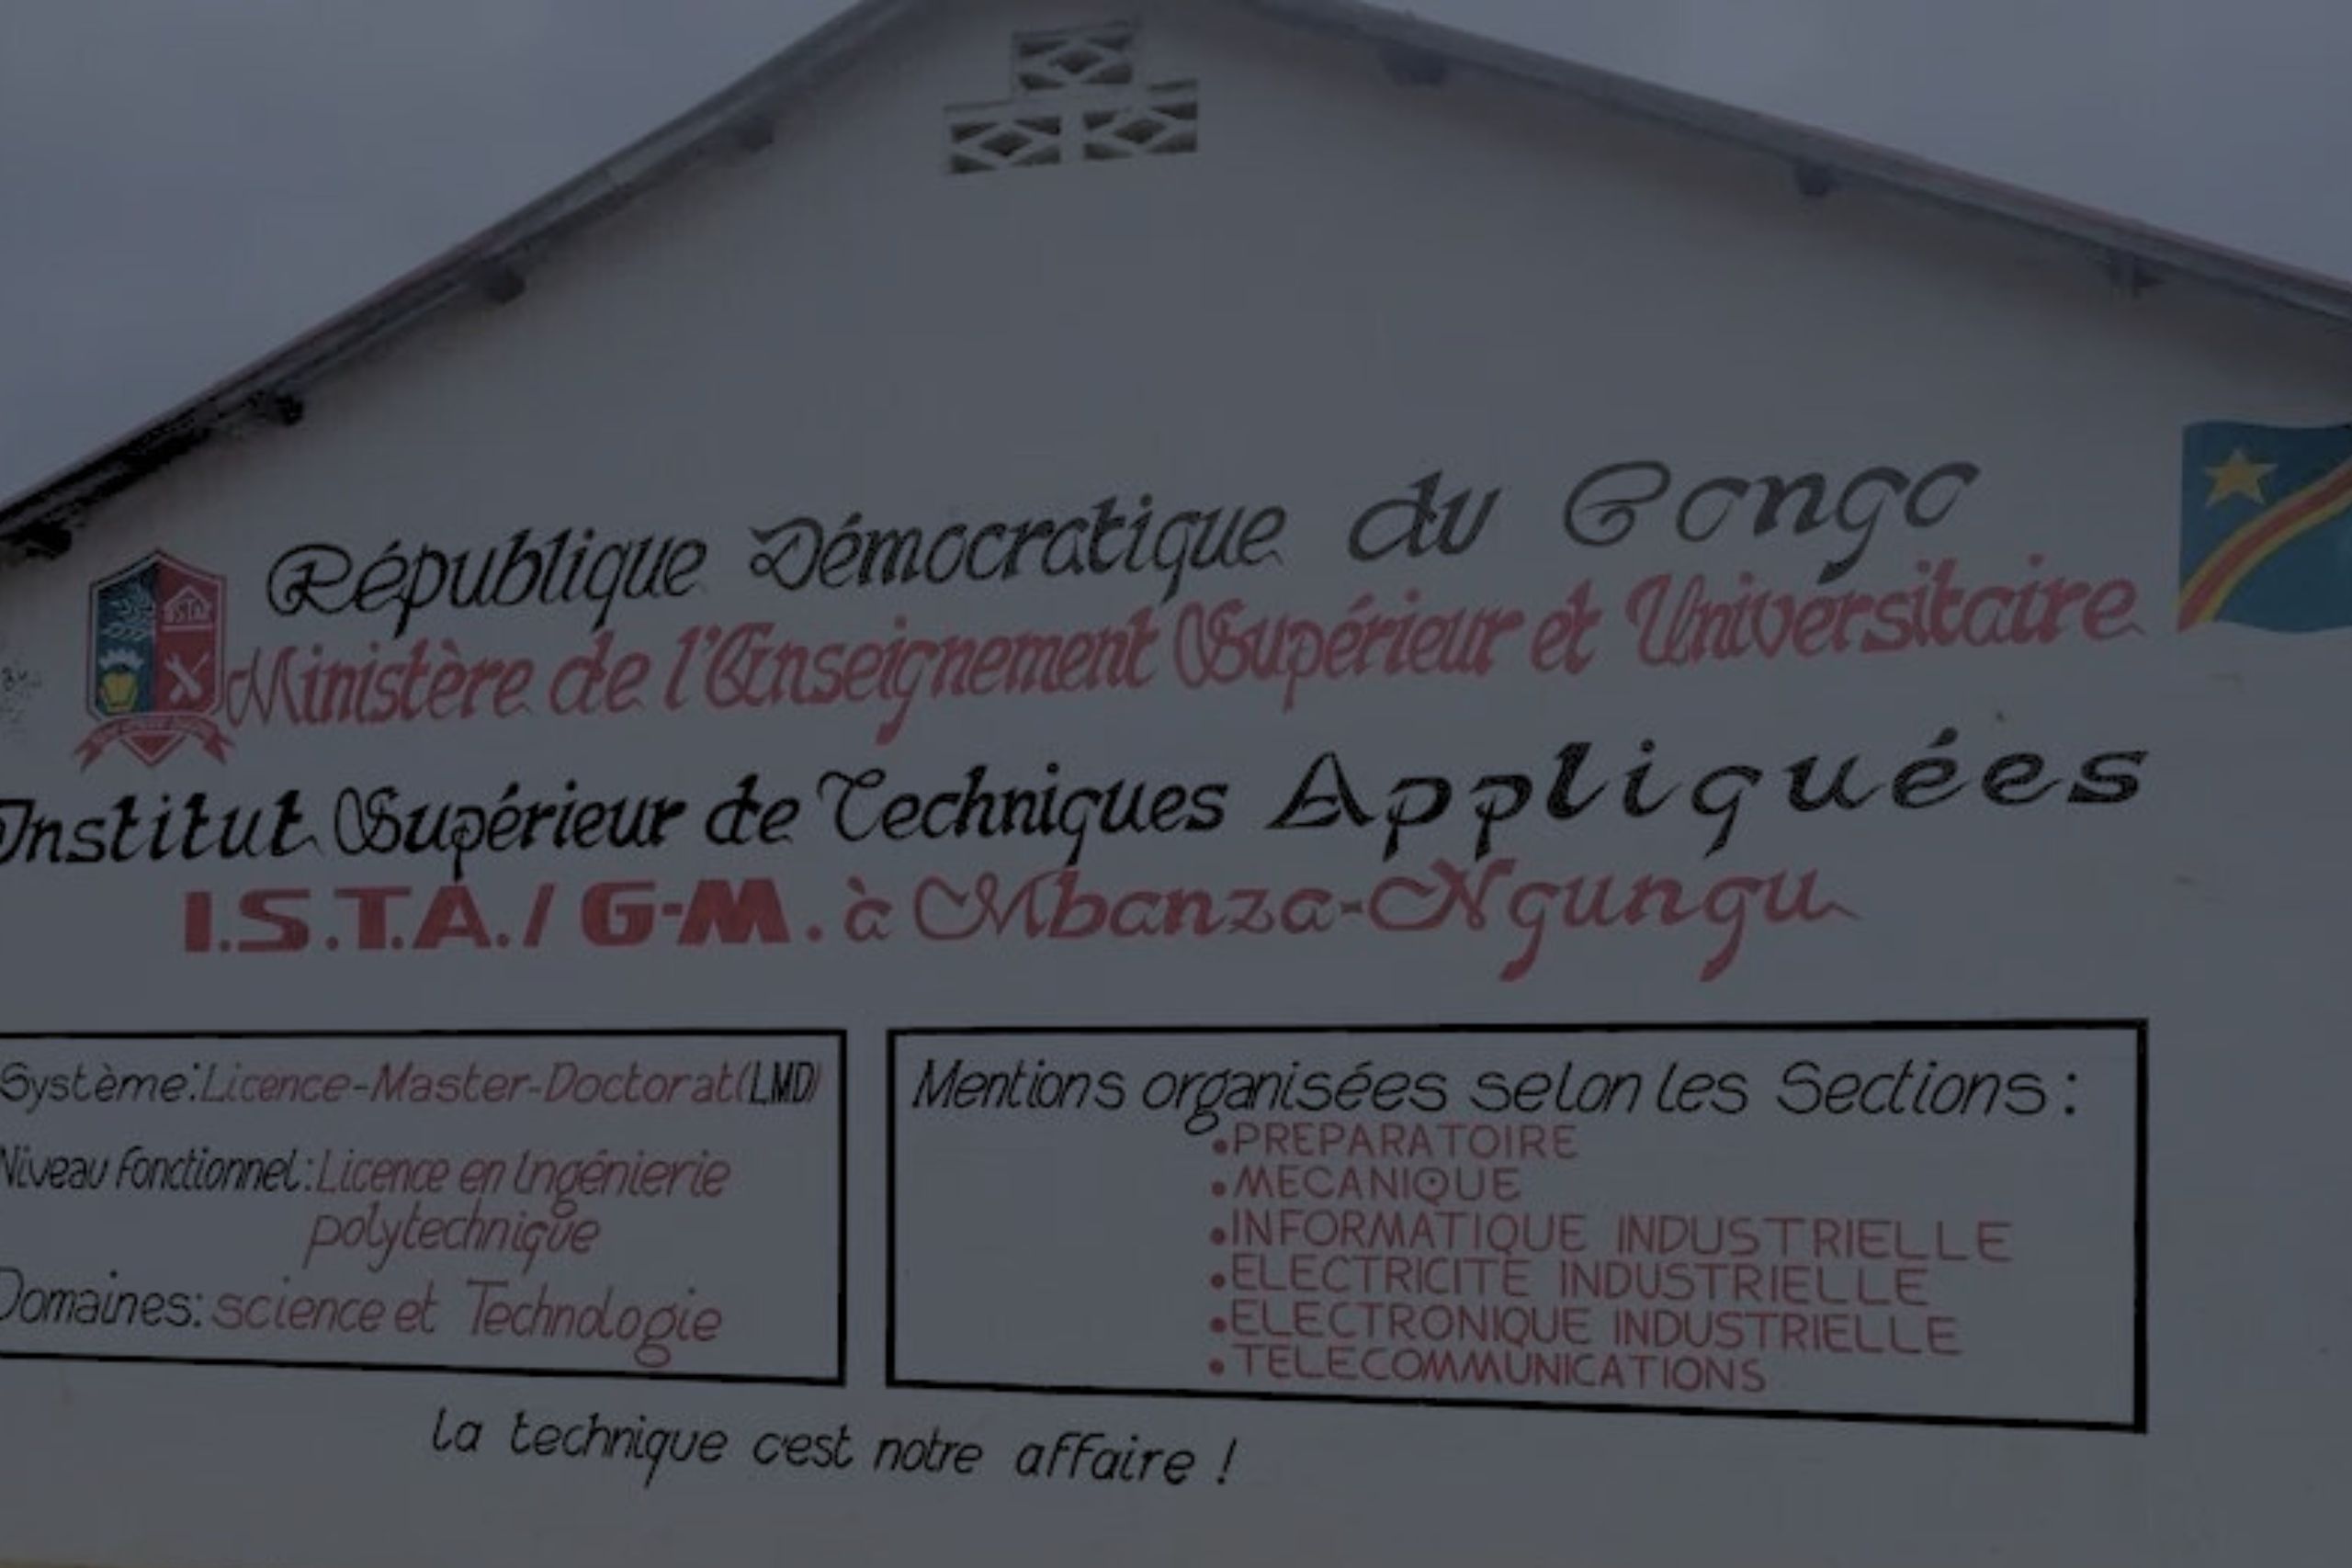 République Démocratique du Congo
Ministère de l'Enseignement Supérieur et Universitaire
Institut Supérieur de Techniques Appliquées
I.S.T.A./ G-M. à Mbanza-Ngungu
Système: Licence-Master-Doctorat (LMD)
Niveau fonctionnel: Licence en Ingénierie
polytechnique
Domaines: science et Technologie
Mentions organisées selon les Sections :
•PREPARATOIRE
•MECANIQUE
•INFORMATIQUE INDUSTRIELLE
•ELECTRICITE INDUSTRIELLE
•ELECTRONIQUE INDUSTRIELLE
•TELECOMMUNICATIONS
la technique c'est notre affaire !